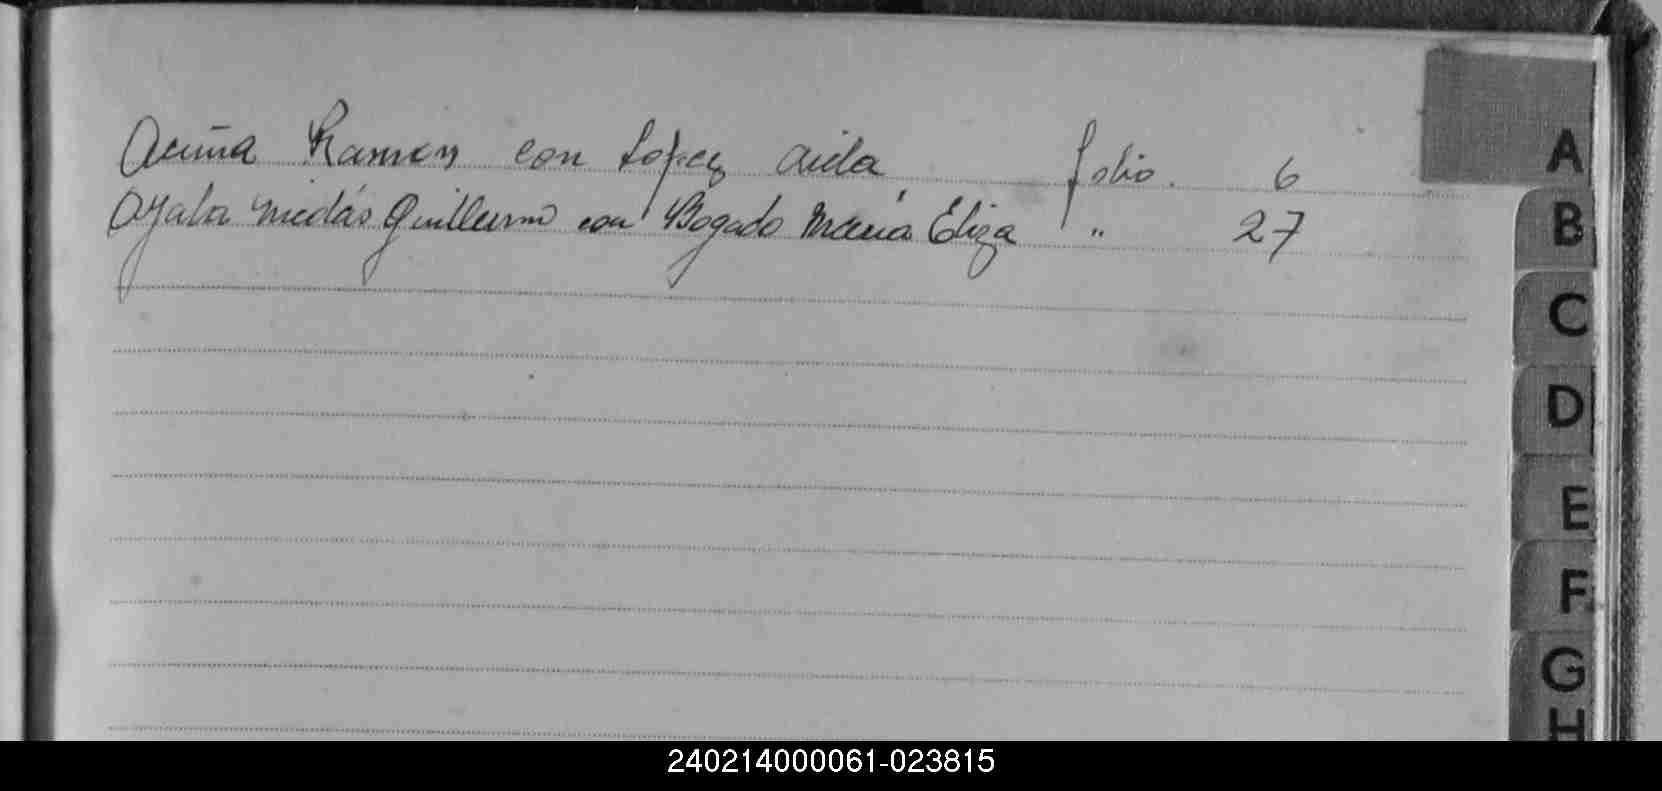 Acuña Ramon con Lopez Aida folio. 6
Ayala Nicolás Guillermo con Bogado María Eliza " 27
A
B
C
D
E
F
G
H
240214000061-023815